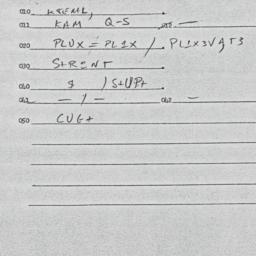 010 KREML,
012 KAM Q-S 013 —
020 PLUX = PL1X / PL1X3VGT3
030 StRENT
040 9 / StUPt
042 — / — 043 —
050 CUGt